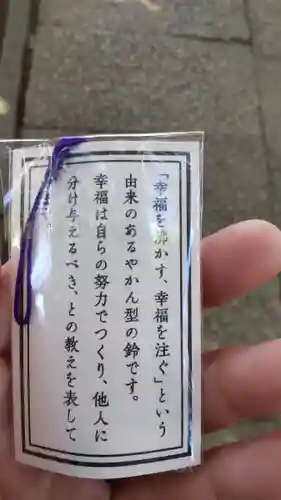 「幸福を沸かす、幸福を注ぐ」という
由来のあるやかん型の鈴です。
幸福は自らの努力でつくり、他人に
分け与えるべき、との教えを表して